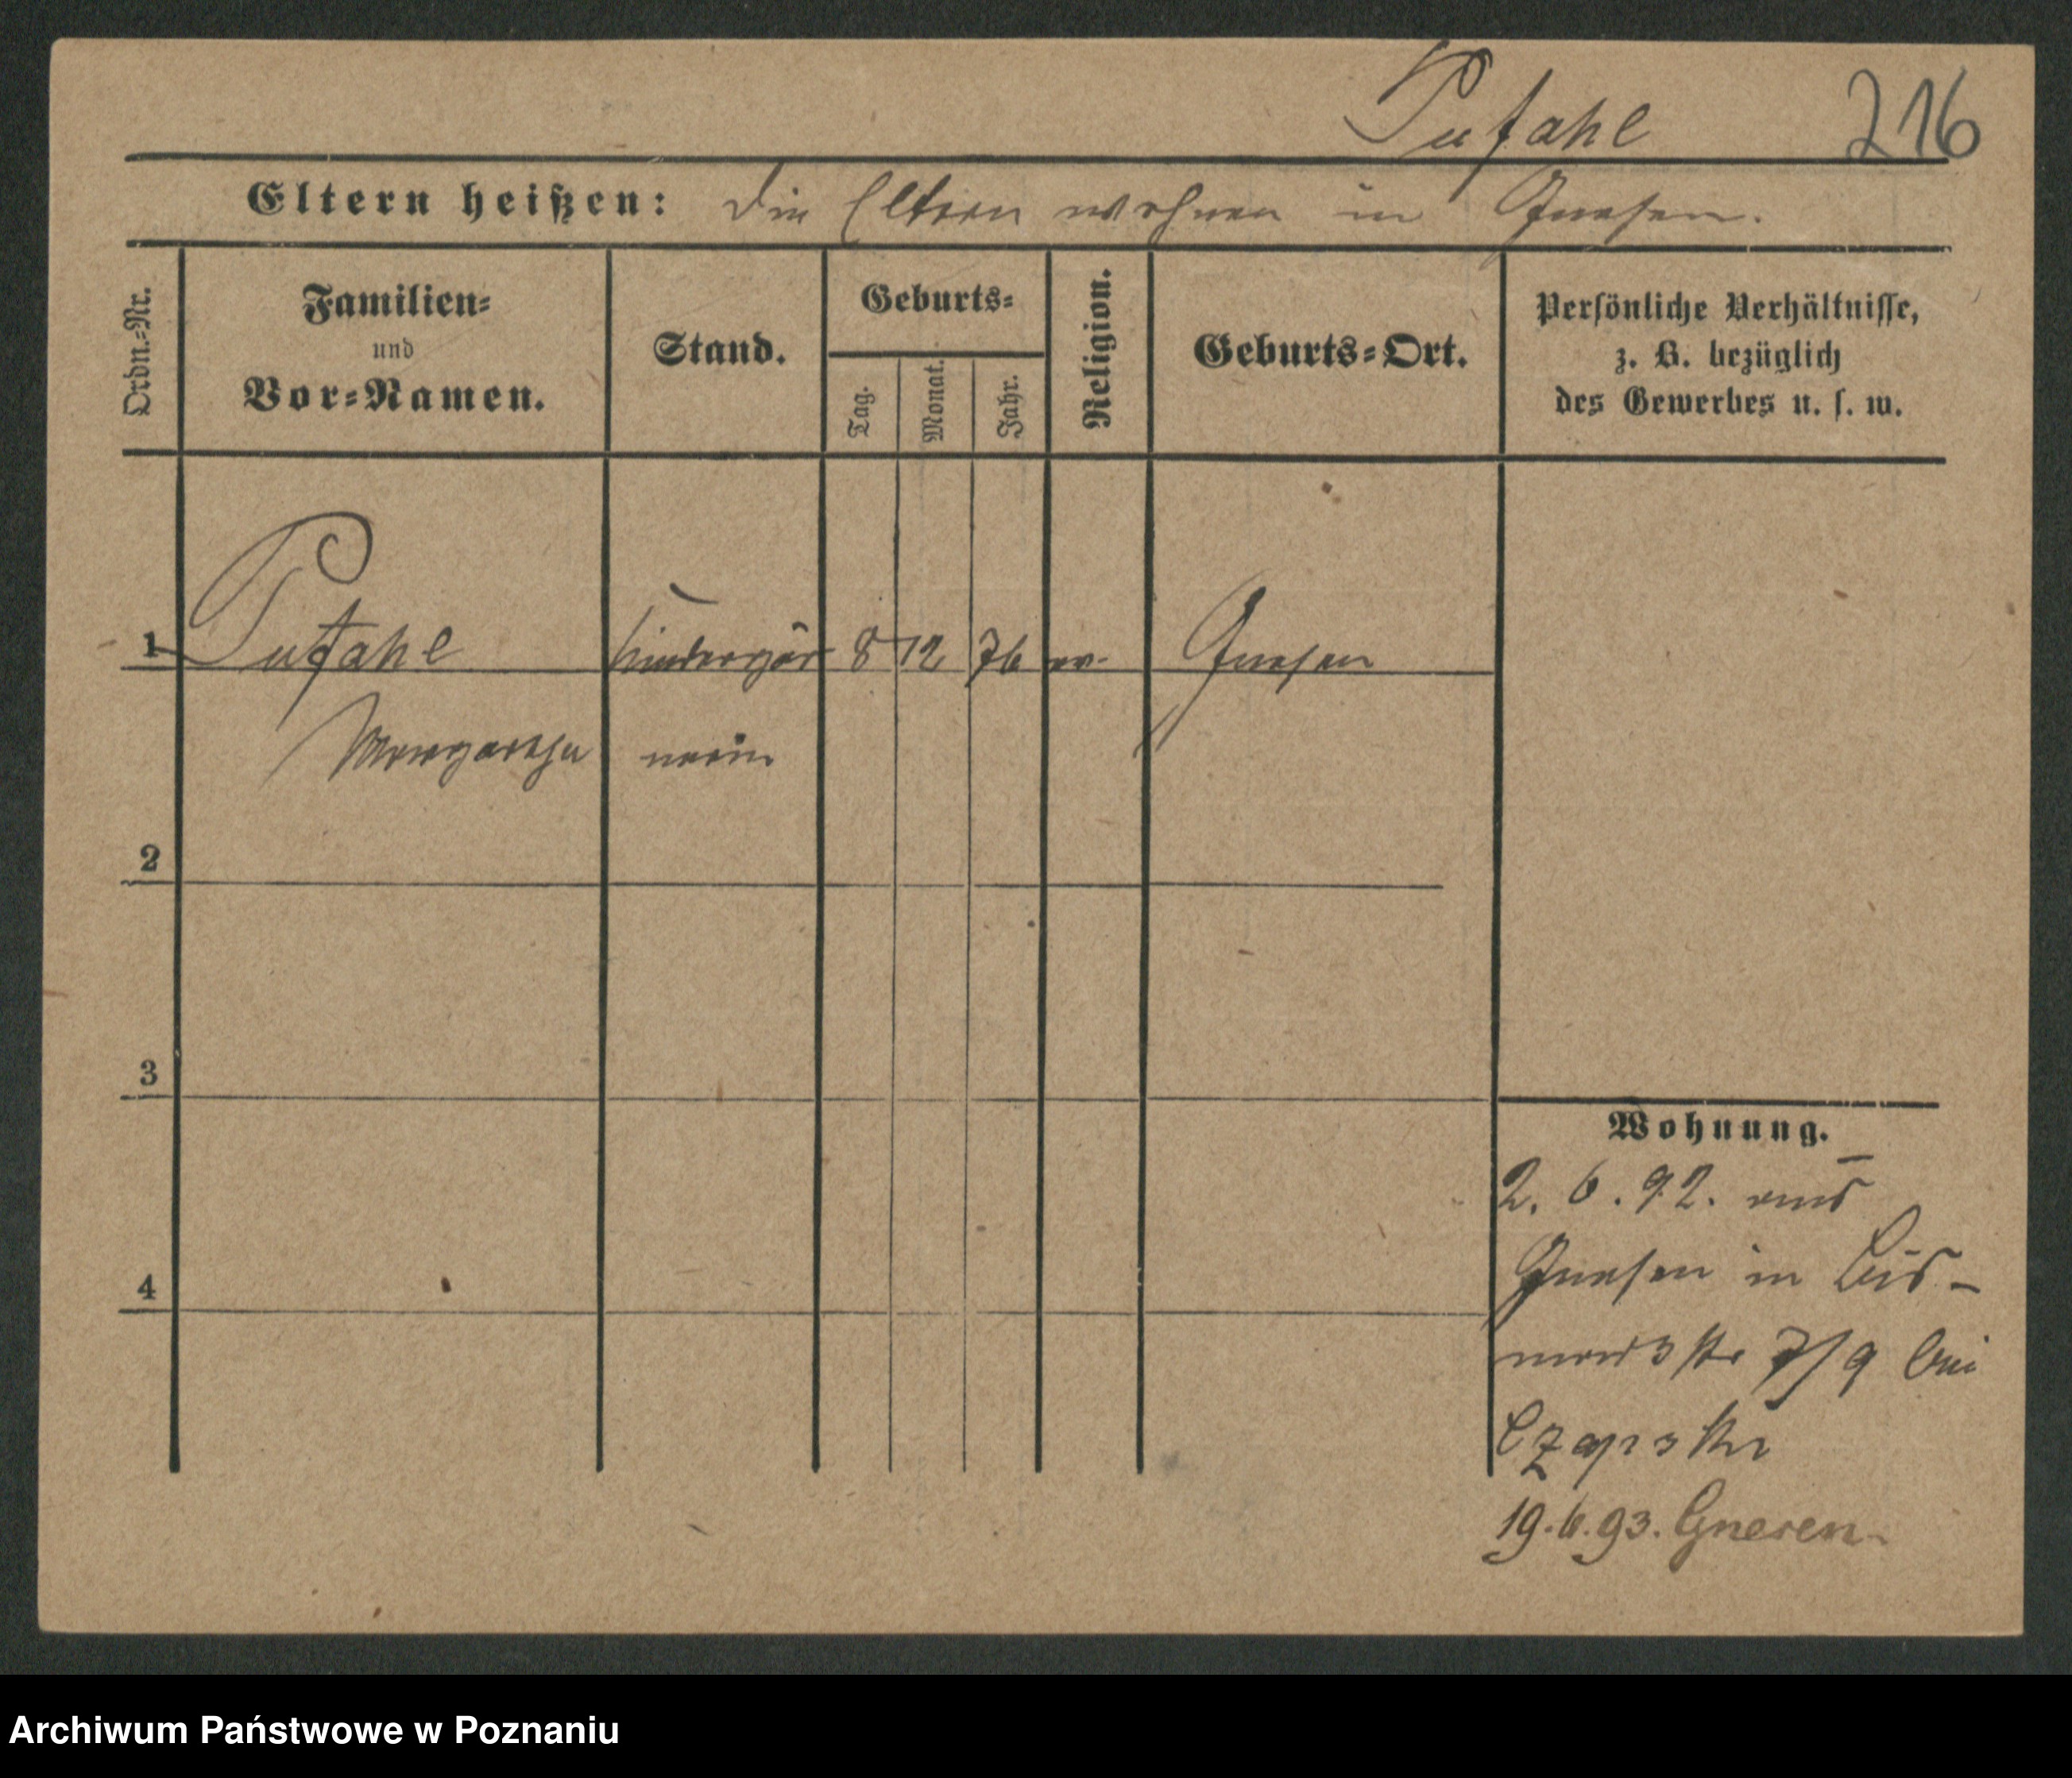 Pufahl 216
Eltern heißen: Die Eltern wohnen in Gnesen.
Ordn.-Nr.
Familien-
und
Vor-Namen.
Stand.
Geburts-
Tag.
Monat.
Jahr.
Religion.
Geburts-Ort.
Persönliche Verhältnisse,
z. B. bezüglich
des Gewerbes u. s. w.
1 Pufahl Kindergär 8 12 76 ev. Gnesen
Margarethe nerin
2
3
4
Wohnung.
2. 6. 92. aus
Gnesen in Bis-
marckstr 7/9 bei
Czapski
19.6.93. Gnesen.
Archiwum Państwowe w Poznaniu